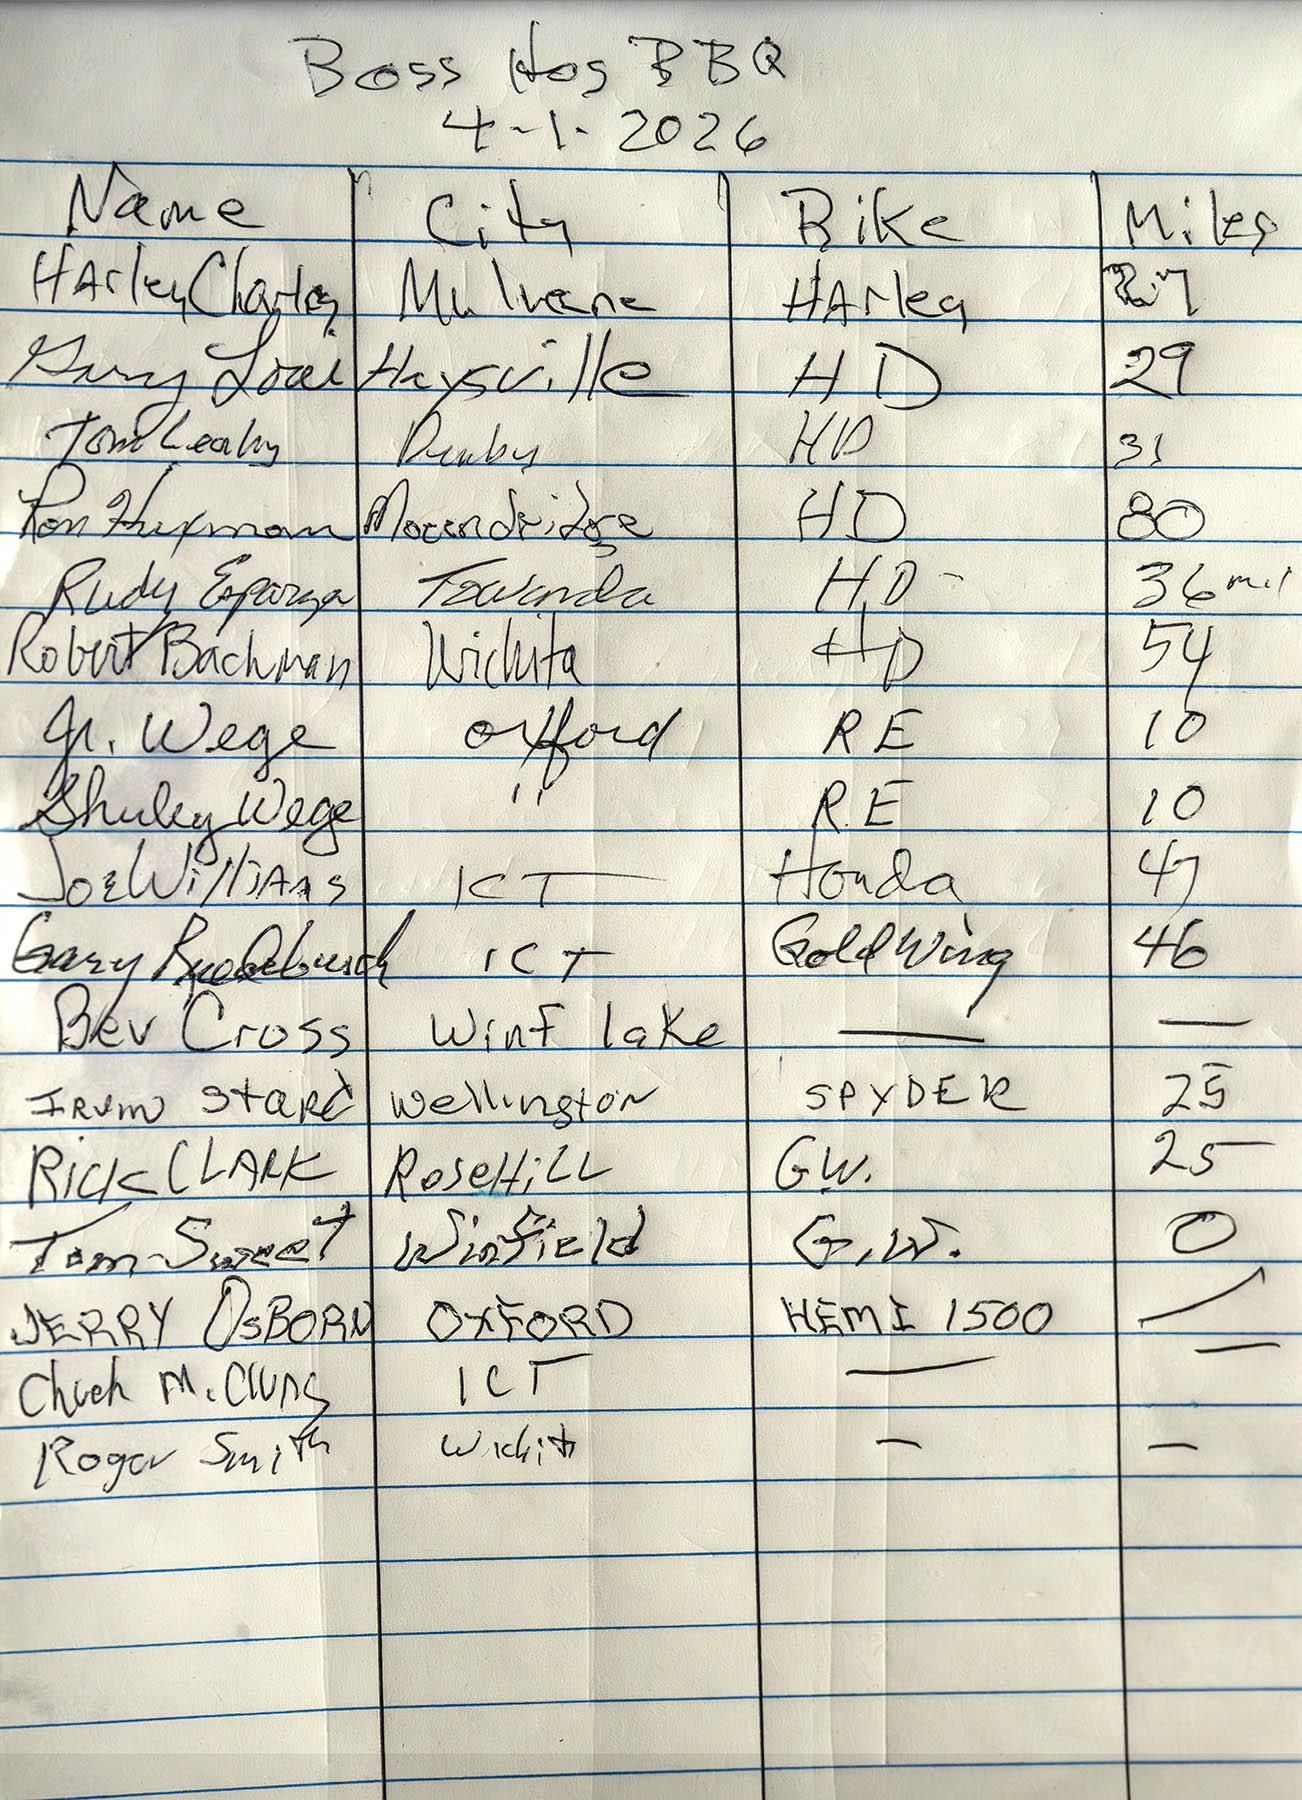 Boss Hog BBQ
4-1-2026
Name City Bike Miles
HArley Charley Mulvane HArley 27
Gary Haysville HD 29
Tom Leahy Derby HD 31
Ron Huxman Moundridge HD 80
Rudy Esparza Towanda H.D- 36 mil
Robert Bachman Wichita HD 54
Jr. Wege oxford R E 10
Shirley Wege " R.E 10
Joe WilliAms ICT Honda 47
Gary ICT Gold Wing 46
Bev Cross Winf lake — —
Wellington SPYDER 25
RICK CLARK ROSEHiLL G.W. 25
Tom Sweet Winfield G.W. 0
JERRY OSBORN OXFORD HEMI 1500 —
Chuck McClung ICT — —
Roger Smith Wichita — —